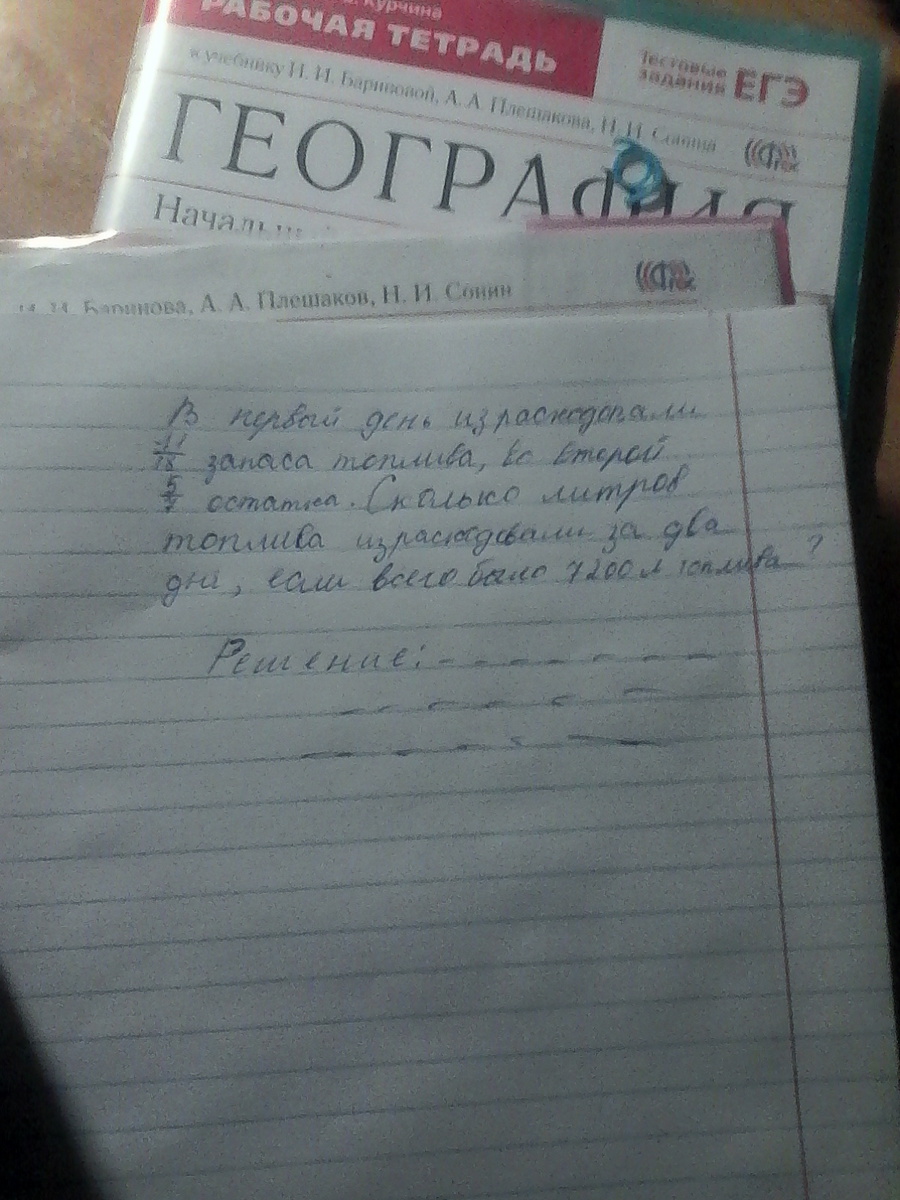 Курчина
РАБОЧАЯ ТЕТРАДЬ
к учебнику И. И. Бариновой, А. А. Плешакова, Н. И. Сонина
Тестовые
задания ЕГЭ
ГЕОГРАФИЯ
И. И. Баринова, А. А. Плешаков, Н. И. Сонин
В первый день израсходовали
11/18 запаса топлива, во второй
5/7 остатка. Сколько литров
топлива израсходовали за два
дня, если всего было 7200 л топлива?
Решение: